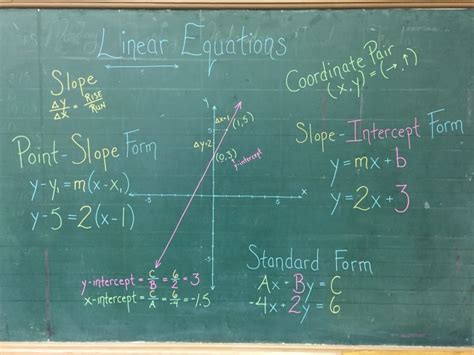 Linear Equations
Coordinate Pair
(x, y) = (→, ↑)
Slope
Δy = Rise
Δx Run
Point-Slope Form
y-y₁=m(x-x₁)
y-5=2(x-1)
y
Δx=1
(1,5)
Δy=2
(0,3)
y-intercept
x
5
-5
5
-5
Slope-Intercept Form
y=mx+b
y=2x+3
y-intercept = C/B = 6/2 = 3
x-intercept = C/A = 6/-4 = -1.5
Standard Form
Ax+By=C
-4x+2y=6